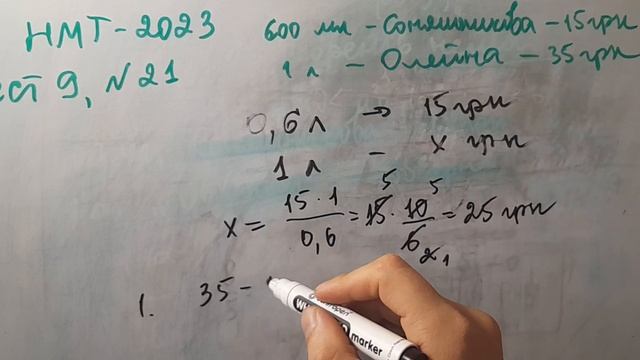 НМТ-2023
ест 9, №21
600 мл - Соняшникова - 15 грн
1 л - Олейна - 35 грн
0,6 л → 15 грн
1 л - x грн
x = 15·1/0,6 = 15·10/6 = 25 грн
5 5
2 1
1. 35 -
marker